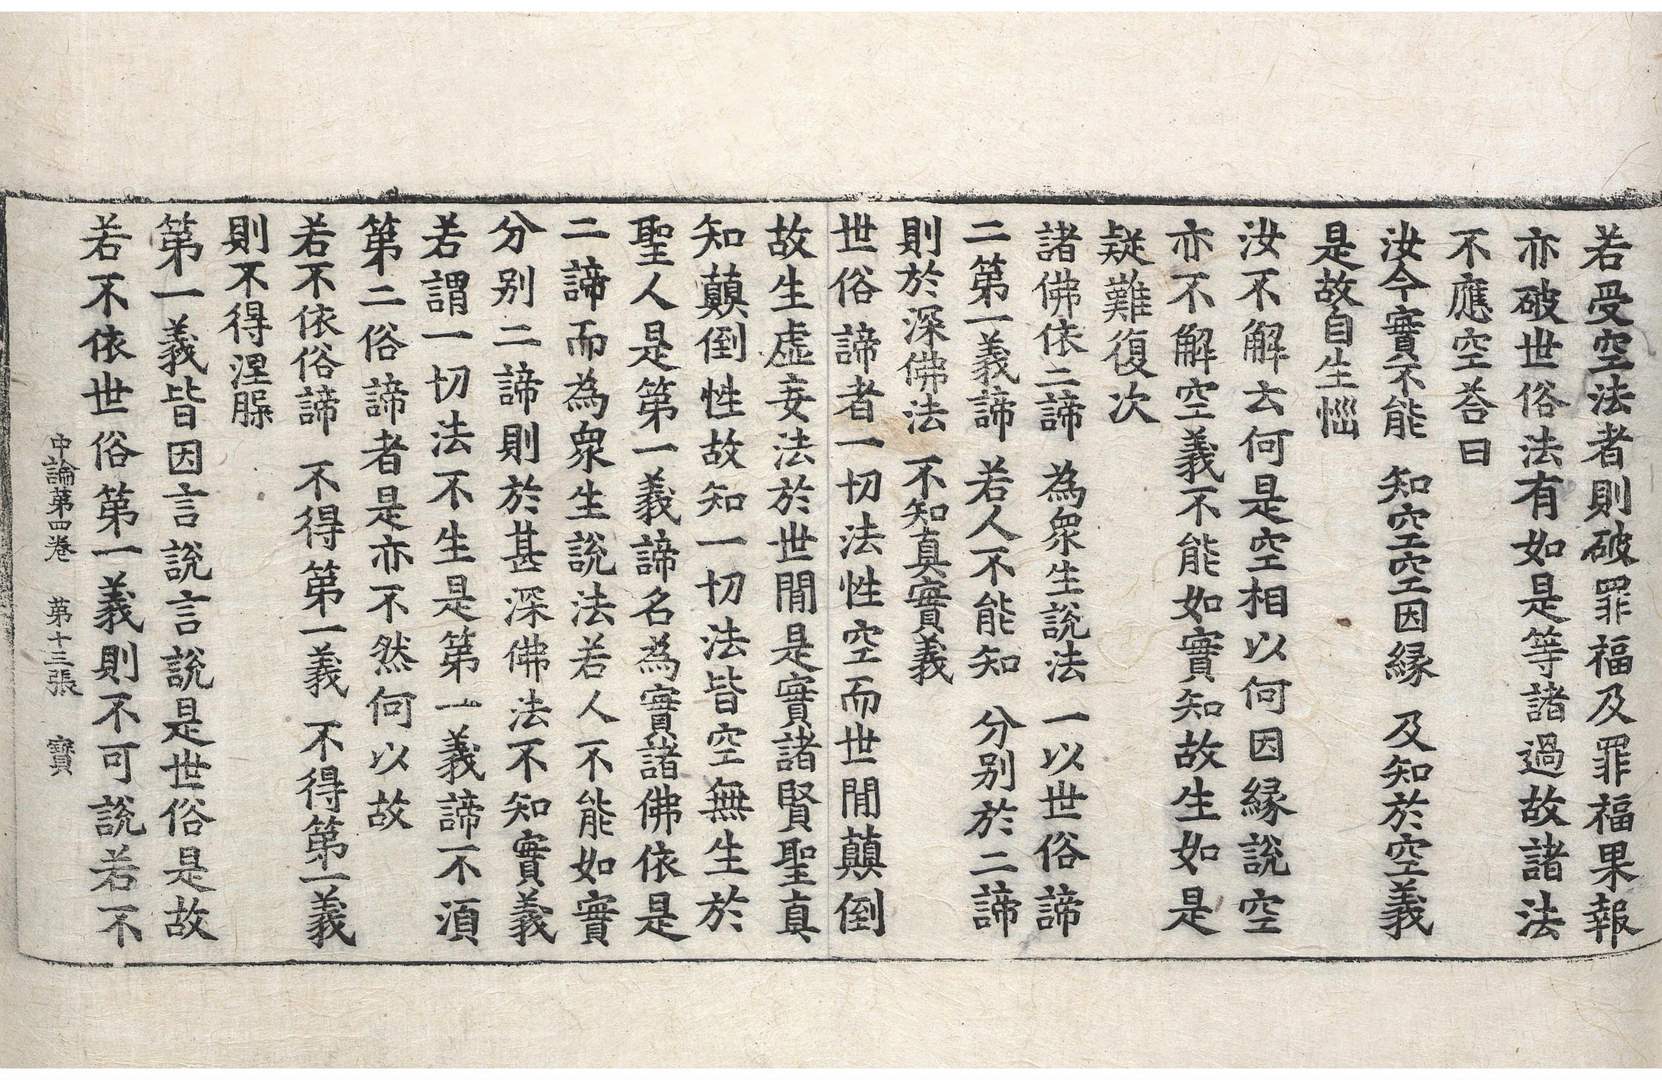 若受空法者則破罪福及罪福果報
亦破世俗法有如是等諸過故諸法
不應空荅曰
汝今實不能 知空空因緣 及知於空義
是故自生惱
汝不解云何是空相以何因緣說空
亦不解空義不能如實知故生如是
疑難復次
諸佛依二諦 為衆生說法 一以世俗諦
二第一義諦 若人不能知 分別於二諦
則於深佛法 不知真實義
世俗諦者一切法性空而世間顛倒
故生虛妄法於世間是實諸賢聖真
知顛倒性故知一切法皆空無生於
聖人是第一義諦名為實諸佛依是
二諦而為衆生說法若人不能如實
分別二諦則於甚深佛法不知實義
若謂一切法不生是第一義諦不湏
第二俗諦者是亦不然何以故
若不依俗諦 不得第一義 不得第一義
則不得涅槃
第一義皆因言說言說是世俗是故
若不依世俗第一義則不可說若不
中論第四卷 第十三張 寶